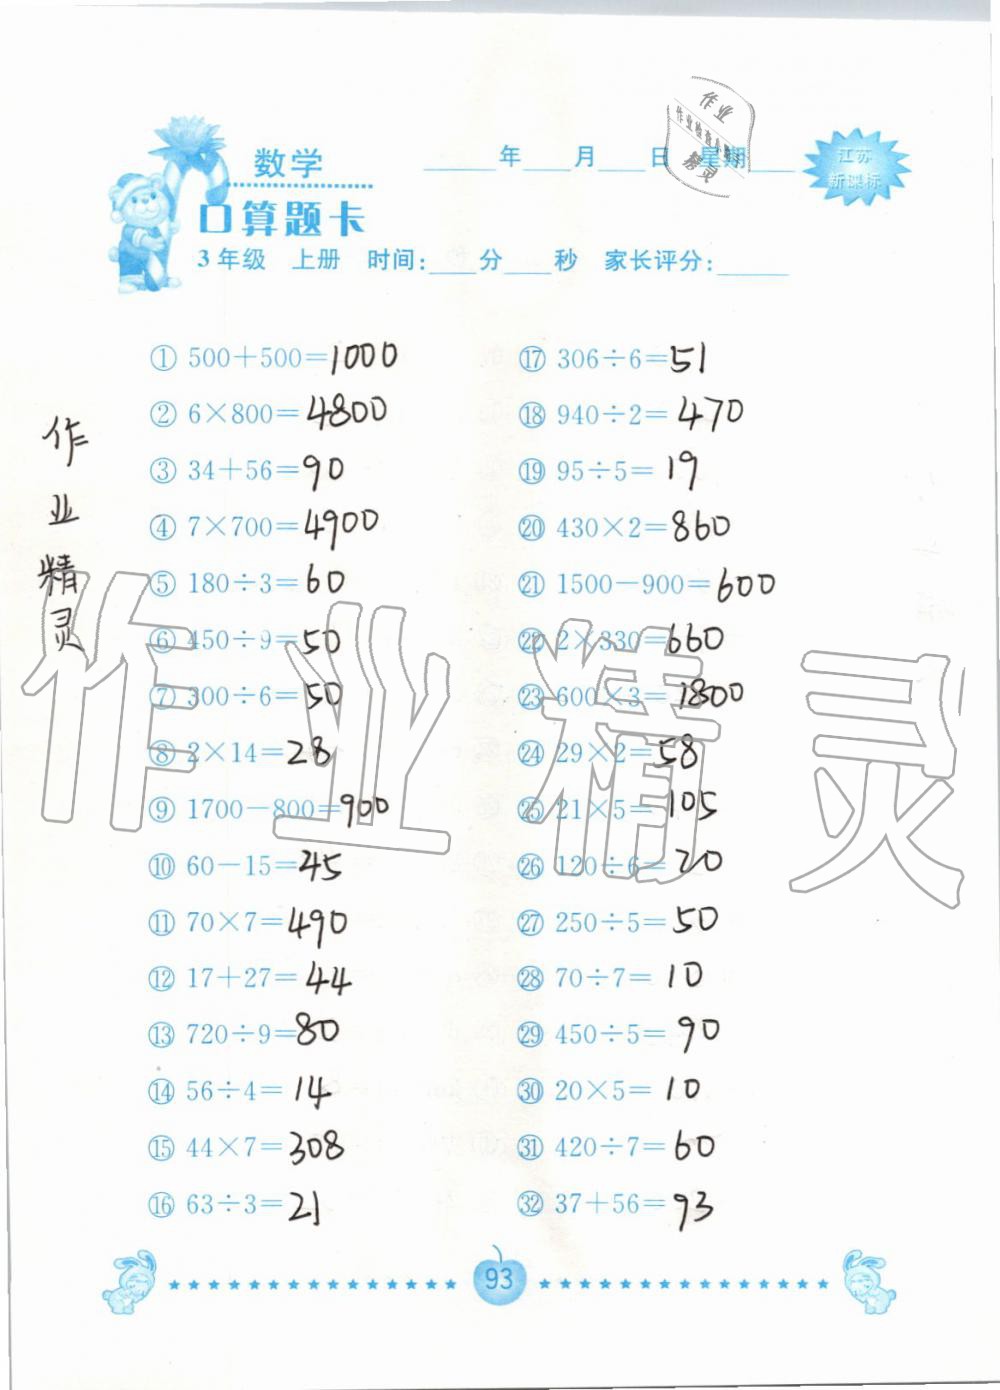 作业
作业检查小帮手
精灵
江苏
新课标
数学
____年____月____日 星期____
口算题卡
3年级 上册 时间:____分____秒 家长评分:____
① 500+500=1000
② 6×800=4800
③ 34+56=90
④ 7×700=4900
⑤ 180÷3=60
⑥ 450÷9=50
⑦ 300÷6=50
⑧ 2×14=28
⑨ 1700-800=900
⑩ 60-15=45
⑪ 70×7=490
⑫ 17+27=44
⑬ 720÷9=80
⑭ 56÷4=14
⑮ 44×7=308
⑯ 63÷3=21
⑰ 306÷6=51
⑱ 940÷2=470
⑲ 95÷5=19
⑳ 430×2=860
㉑ 1500-900=600
㉒ 2×330=660
㉓ 600×3=1800
㉔ 29×2=58
㉕ 21×5=105
㉖ 120÷6=20
㉗ 250÷5=50
㉘ 70÷7=10
㉙ 450÷5=90
㉚ 20×5=10
㉛ 420÷7=60
㉜ 37+56=93
作业精灵
作业精灵
93